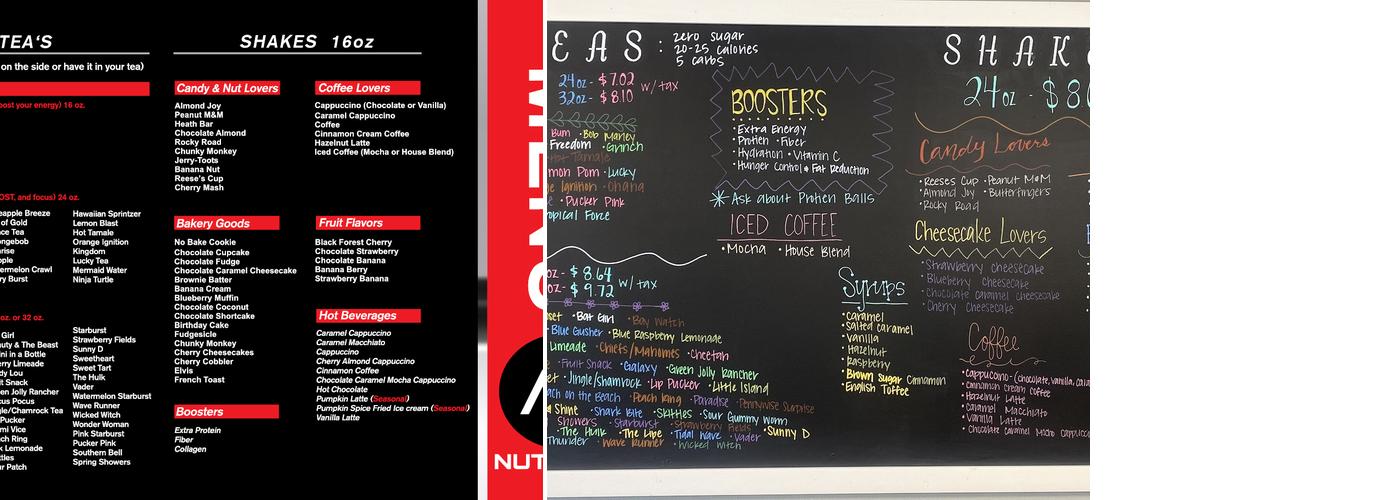 TEA'S
on the side or have it in your tea)
oost your energy) 16 oz.
OST, and focus) 24 oz.
eapple Breeze
of Gold
ace Tea
ongebob
nrise
ople
termelon Crawl
ry Burst
Hawaiian Sprintzer
Lemon Blast
Hot Tamale
Orange Ignition
Kingdom
Lucky Tea
Mermaid Water
Ninja Turtle
oz. or 32 oz.
Girl
uty & The Beast
ni in a Bottle
erry Limeade
dy Lou
it Snack
en Jolly Rancher
us Pocus
gle/Chamrock Tea
Pucker
mi Vice
ch Ring
k Lemonade
ttles
ur Patch
Starburst
Strawberry Fields
Sunny D
Sweetheart
Sweet Tart
The Hulk
Vader
Watermelon Starburst
Wave Runner
Wicked Witch
Wonder Woman
Pink Starburst
Pucker Pink
Southern Bell
Spring Showers
SHAKES 16oz
Candy & Nut Lovers
Almond Joy
Peanut M&M
Heath Bar
Chocolate Almond
Rocky Road
Chunky Monkey
Jerry-Toots
Banana Nut
Reese's Cup
Cherry Mash
Bakery Goods
No Bake Cookie
Chocolate Cupcake
Chocolate Fudge
Chocolate Caramel Cheesecake
Brownie Batter
Banana Cream
Blueberry Muffin
Chocolate Coconut
Chocolate Shortcake
Birthday Cake
Fudgesicle
Chunky Monkey
Cherry Cheesecakes
Cherry Cobbler
Elvis
French Toast
Boosters
Extra Protein
Fiber
Collagen
Coffee Lovers
Cappuccino (Chocolate or Vanilla)
Caramel Cappuccino
Coffee
Cinnamon Cream Coffee
Hazelnut Latte
Iced Coffee (Mocha or House Blend)
Fruit Flavors
Black Forest Cherry
Chocolate Strawberry
Chocolate Banana
Banana Berry
Strawberry Banana
Hot Beverages
Caramel Cappuccino
Caramel Macchiato
Cappuccino
Cherry Almond Cappuccino
Cinnamon Coffee
Chocolate Caramel Mocha Cappuccino
Hot Chocolate
Pumpkin Latte (Seasonal)
Pumpkin Spice Fried Ice cream (Seasonal)
Vanilla Latte
NUT
EAS:
zero sugar
20-25 calories
5 carbs
24oz - $7.02
32oz - $8.10
w/tax
Bum • Bob Marley
Freedom • Grinch
Hot Tamale
mon Pom • Lucky
ge Ignition • Ohana
• Pucker Pink
opical Force
oz - $8.64
oz - $9.72
w/tax
set • Bat Girl • Bay Watch
• Blue Gusher • Blue Raspberry Lemonade
Limeade • Chiefs/Mahomes • Cheetah
• Fruit Snack • Galaxy • Green Jolly Rancher
et • Jingle/Shamrock • Lip Pucker • Little Island
ach on the Beach • Peach King • Paradise • Pennywise Surprise
d Shine • Shark Bite • Skittles • Sour Gummy Worm
Showers • Starburst • Strawberry Fields
• The Hulk • The Line • Tidal Wave • Vader • Sunny D
Thunder • Wave Runner • Wicked Witch
BOOSTERS
• Extra Energy
• Protien • Fiber
• Hydration • Vitamin C
• Hunger Control & Fat Reduction
* Ask about Protien Balls
ICED COFFEE
• Mocha • House Blend
Syrups
• Caramel
• Salted Caramel
• Vanilla
• Hazelnut
• Raspberry
• Brown Sugar Cinnamon
• English Toffee
SHAK
24oz - $8
Candy Lovers
• Reeses Cup • Peanut M&M
• Almond Joy • Butterfingers
• Rocky Road
Cheesecake Lovers
• Strawberry Cheesecake
• Blueberry Cheesecake
• Chocolate Caramel Cheesecake
• Cherry Cheesecake
Coffee
• Cappuccino - (chocolate, vanilla, cara
• Cinnamon Cream Coffee
• Hazelnut Latte
• Caramel Macchiato
• Vanilla Latte
• Chocolate Caramel Mocha Cappucci